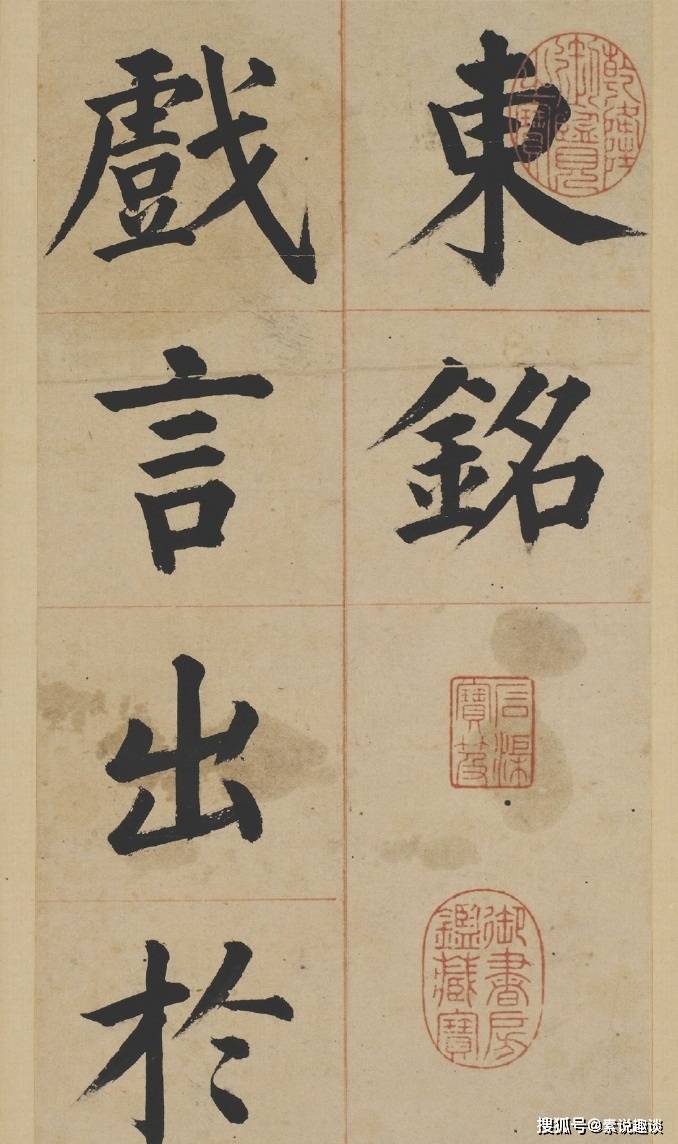 東銘
戲言出於
乾隆御覽之寶
石渠寶笈
御書房鑑藏寶
搜狐号@素说趣谈